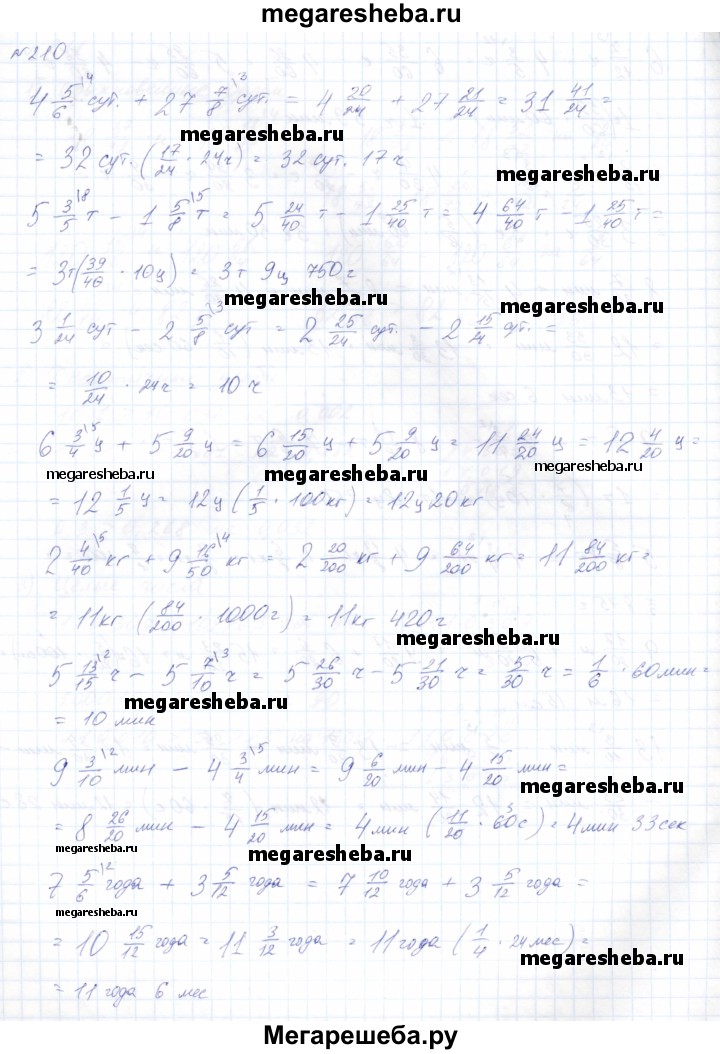 megaresheba.ru
№210
4 5/6\4 сут. + 27 7/8\3 сут. = 4 20/24 + 27 21/24 = 31 41/24 =
megaresheba.ru
= 32 сут. (17/24 · 24ч) = 32 сут. 17 ч
megaresheba.ru
5 3/5\8 т - 1 5/8\5 т = 5 24/40 т - 1 25/40 т = 4 64/40 т - 1 25/40 т =
megaresheba.ru
= 3т(39/40 · 10ц) = 3т 9ц 750г
megaresheba.ru
3 1/24 сут - 2 5/8\3 сут = 2 25/24 сут. - 2 15/24 сут. =
megaresheba.ru
= 10/24 · 24ч = 10 ч
megaresheba.ru
6 3/4\5 ц + 5 9/20 ц = 6 15/20 ц + 5 9/20 ц = 11 24/20 ц = 12 4/20 ц =
megaresheba.ru megaresheba.ru megaresheba.ru
= 12 1/5 ц = 12ц (1/5 · 100кг) = 12ц 20кг
2 4/40\5 кг + 9 16/50\4 кг = 2 20/200 кг + 9 64/200 кг = 11 84/200 кг =
= 11кг (84/200 · 1000г) = 11кг 420г
megaresheba.ru
5 13/15\2 ч - 5 7/10\3 ч = 5 26/30 ч - 5 21/30 ч = 5/30 ч = 1/6 · 60мин =
megaresheba.ru
= 10 мин
9 3/10\2 мин - 4 3/4\5 мин = 9 6/20 мин - 4 15/20 мин =
megaresheba.ru
= 8 26/20 мин - 4 15/20 мин = 4мин (11/20 · 60 3 с) = 4мин 33сек
megaresheba.ru megaresheba.ru
7 5/6\2 года + 3 5/12 года = 7 10/12 года + 3 5/12 года =
megaresheba.ru
= 10 15/12 года = 11 3/12 года = 11года (1/4 · 24мес) =
megaresheba.ru
= 11 года 6 мес
Мегарешеба.ру